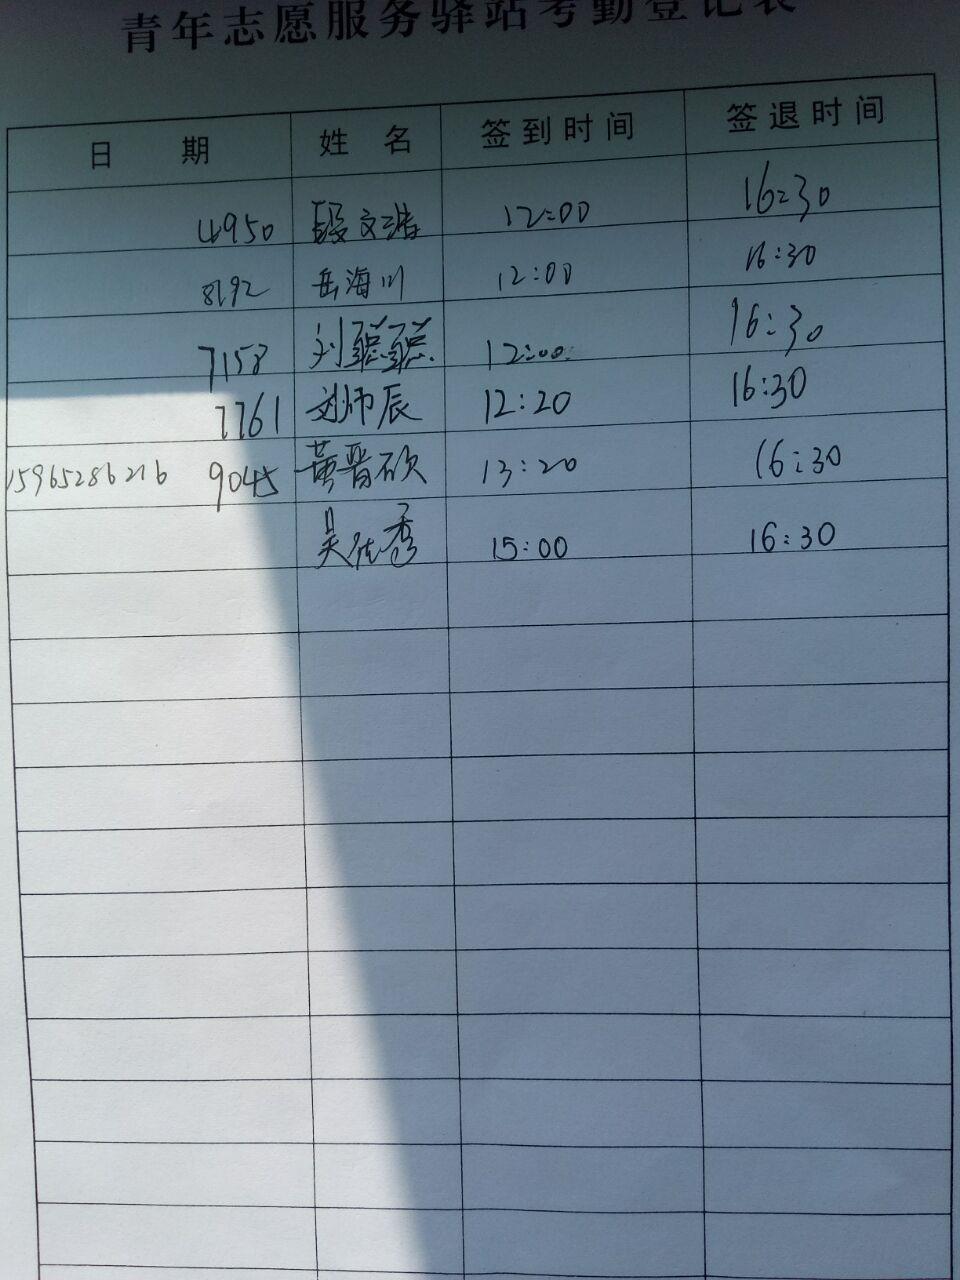 青年志愿服务驿站考勤登记表
日 期 姓 名 签到时间 签退时间
4950 段文浩 12:00 16:30
8192 岳海川 12:00 16:30
7158 刘聪聪 12:00 16:30
7761 刘帅辰 12:20 16:30
15965286216 9045 黄晋硕 13:20 16:30
吴 秀 15:00 16:30